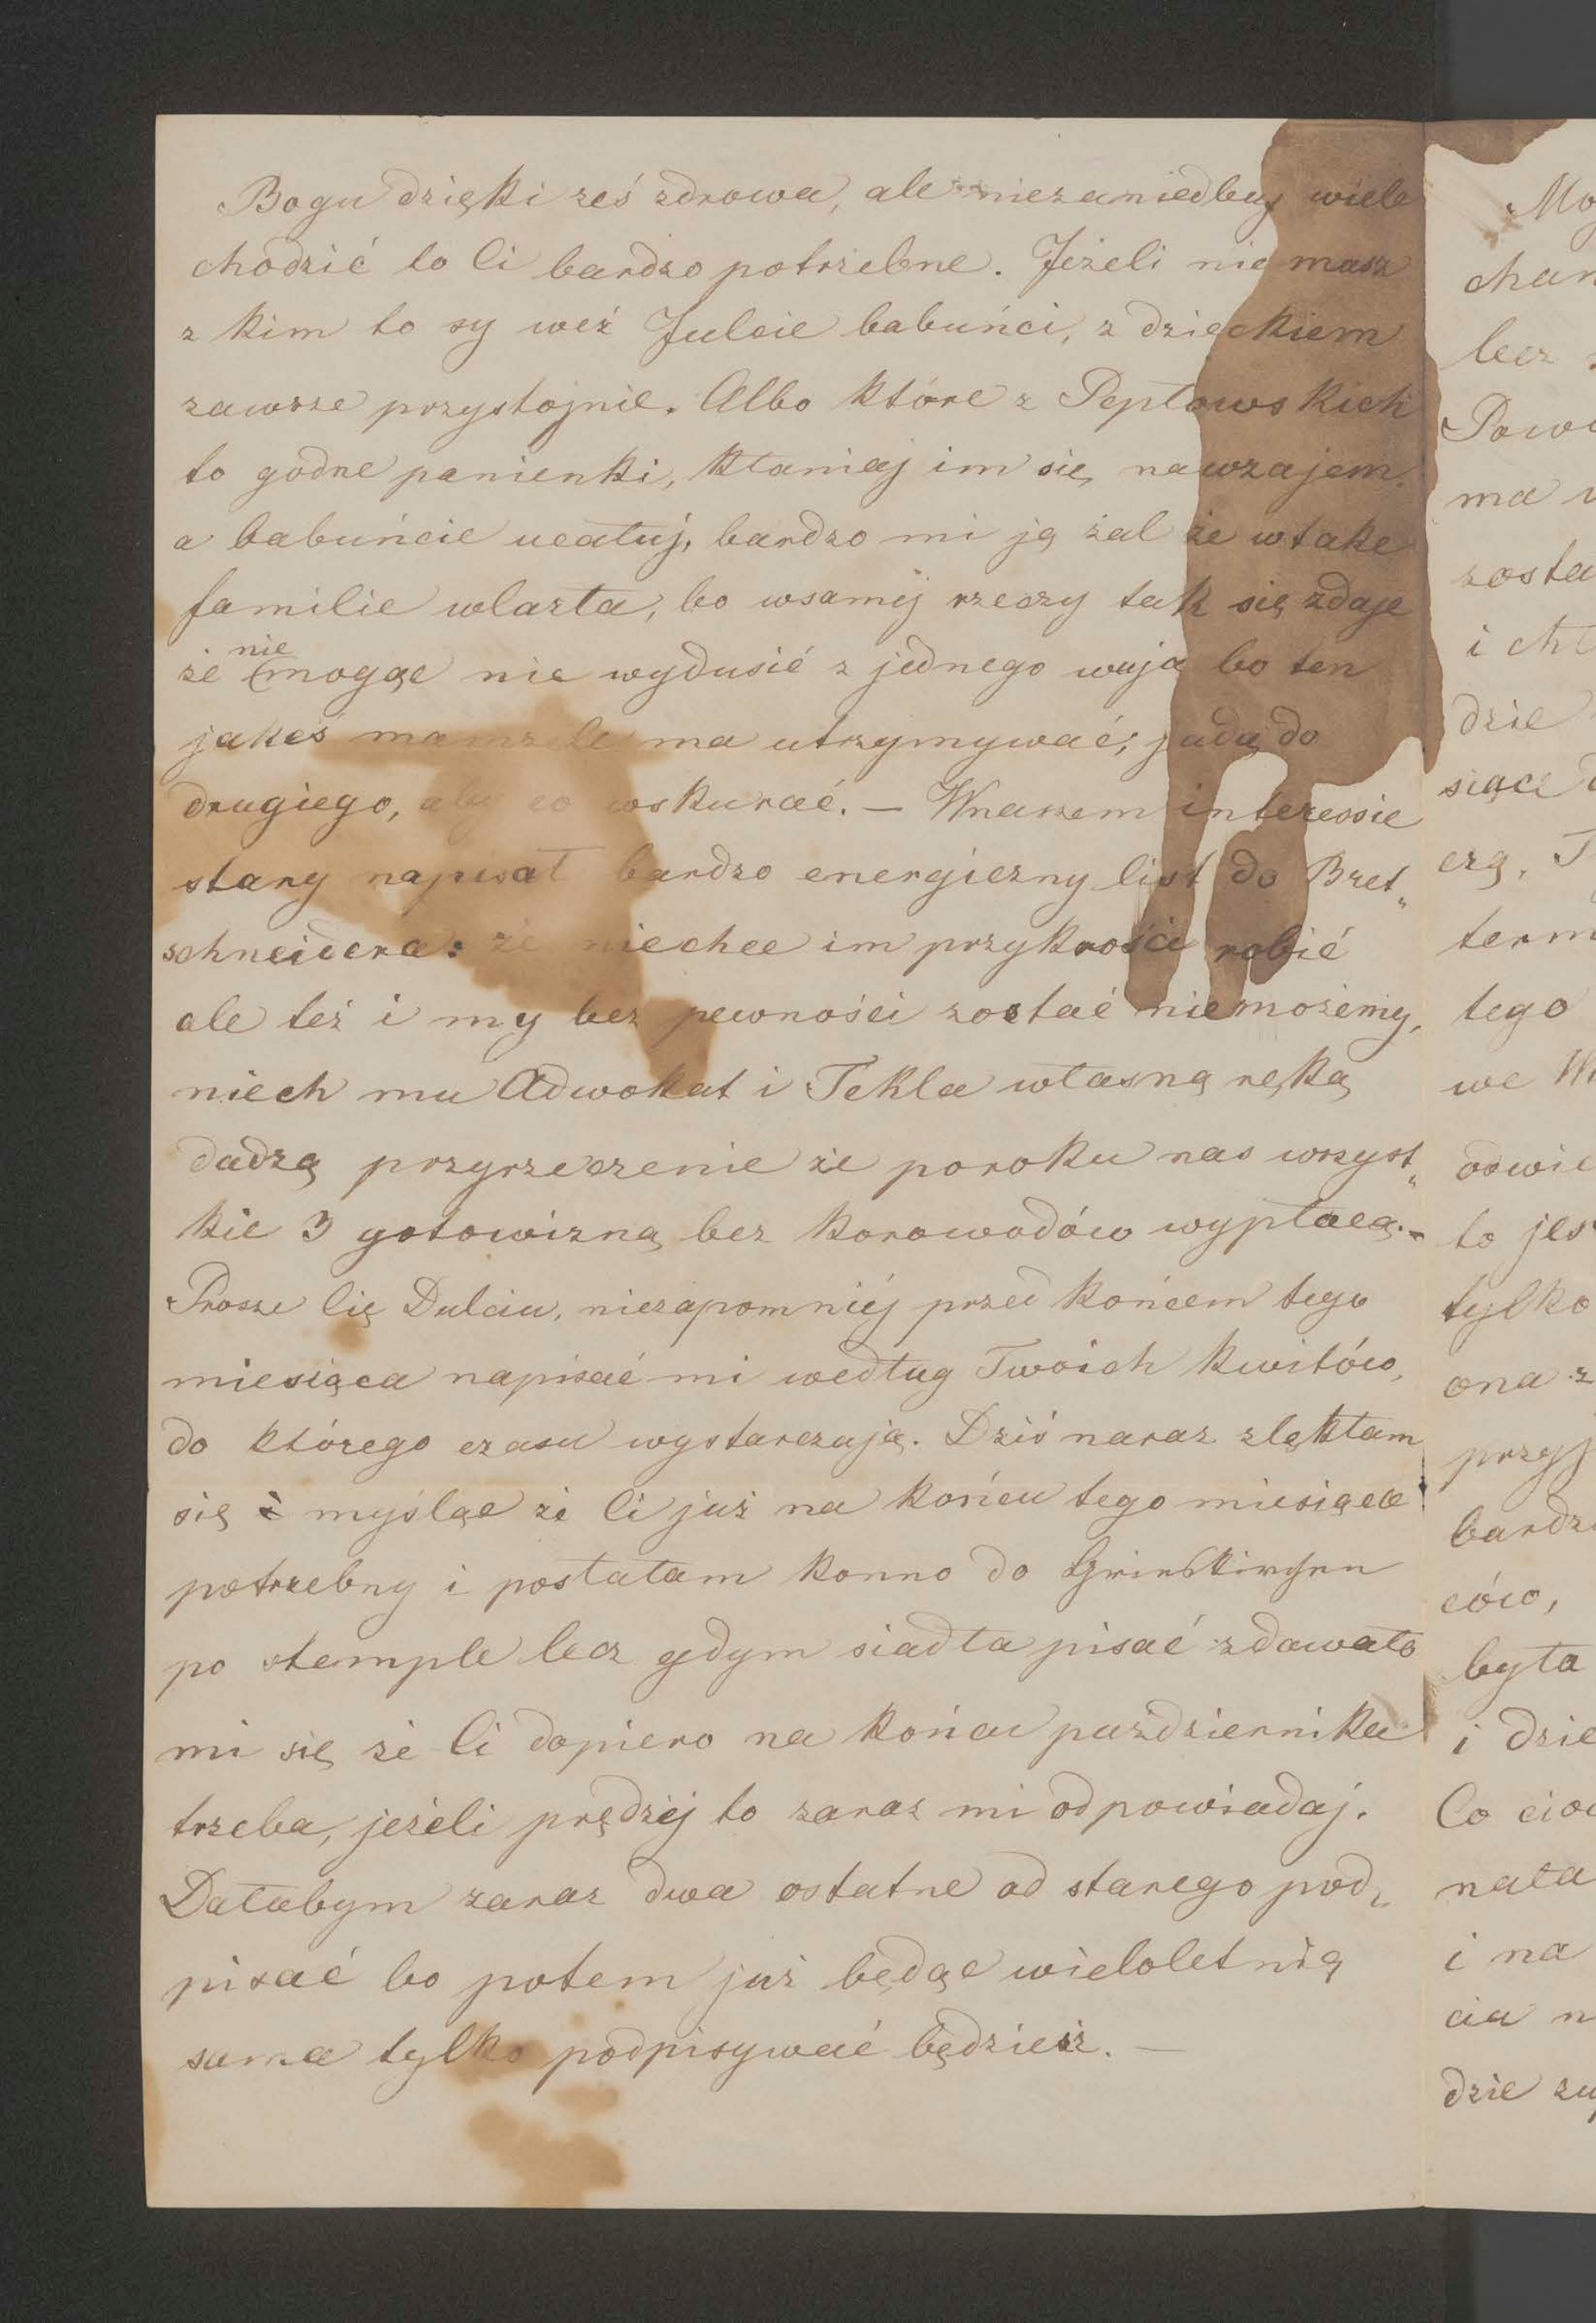 Bogu dzięki żeś zdrowa, ale niezaniedbuj wiele
chodzić to Ci bardzo potrzebne. Jeżeli nie masz
z kim to sy weź Julcie babuńci, z dzieckiem
zawsze przystojnie. Albo które z Peptowskich
to godne panienki, kłaniaj im się nawzajem,
a babuńcie ucałuj, bardzo mi ją żal że w take
familie wlazła, bo wsaméj rzeczy tak się zdaje
że nie mogąc nie wydusić z jednego wuja bo ten
jakeś mamzele ma utrzymywać, jadą do
drugiego, aby co wskurać. — Wnaszem interessie
stary napisał bardzo energiczny list do Bret„
schneidera: że niechce im przykrości robić
ale też i my bez pewności zostać niemożemy,
niech mu Adwokat i Tekla własną ręką
dadzą przyrzeczenie że poroku nas wszyst„
kie 3 gotowizną bez korowodów wypłacą. -
Prosze Cię Dulciu, niezapomniéj przed końcem tego
miesiąca napisać mi według Twoich kwitów,
do którego czasu wystarczają. Dziś naraz zlękłam
się myśląc że Ci już na końcu tego miesiąca
potrzebny i posłałam konno do
po stemple lecz gdym siadła pisać zdawało
mi się że Ci dopiero na końcu października
trzeba, jeżeli prędzéj to zaraz mi odpowiadaj.
Dałabym zaraz dwa ostatne od starego pod„
pisać bo potem już będąc wieloletnią
sama tylko podpisywać będziesz. —
Mo
chan
lecz
Powi
ma
zosta
i ch
dzie
siącz
czą, T
term
tego
we
odwie
to jes
tylko
ona z
przyj
bardz
ców,
była
i dzie
Co cio
nała
i na
cia n
dzie zu